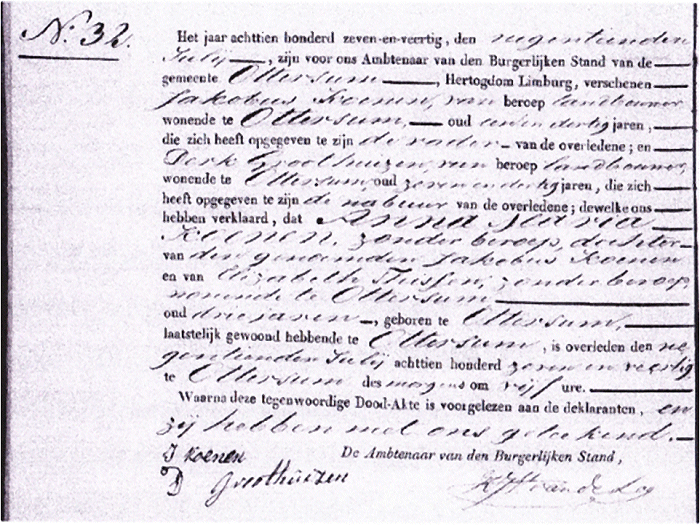 N.º 32.
Het jaar achttien honderd zeven-en-veertig, den negentienden
Julij, zijn voor ons Ambtenaar van den Burgerlijken Stand van de
gemeente Ottersum, Hertogdom Limburg, verschenen
Jakobus Koenen, van beroep landbouwer
wonende te Ottersum, oud een en dertig jaren,
die zich heeft opgegeven te zijn de vader van de overledene; en
Derk Groothuizen, van beroep landbouwer,
wonende te Ottersum oud zeven en dertig jaren, die zich
heeft opgegeven te zijn de nabuur van de overledene; dewelke ons
hebben verklaard, dat Anna Maria
Koenen, zonder beroep, dochter
van den genoemden Jakobus Koenen
en van Elizabeth Thissen, zonder beroep,
wonende te Ottersum
oud drie jaren, geboren te Ottersum,
laatstelijk gewoond hebbende te Ottersum, is overleden den ne
gentienden Julij achttien honderd zeven en veertig
te Ottersum des morgens om vijf ure.
Waarna deze tegenwoordige Dood-Akte is voorgelezen aan de deklaranten, en
zij hebben met ons geteekend.
J Koenen De Ambtenaar van den Burgerlijken Stand,
D Groothuizen